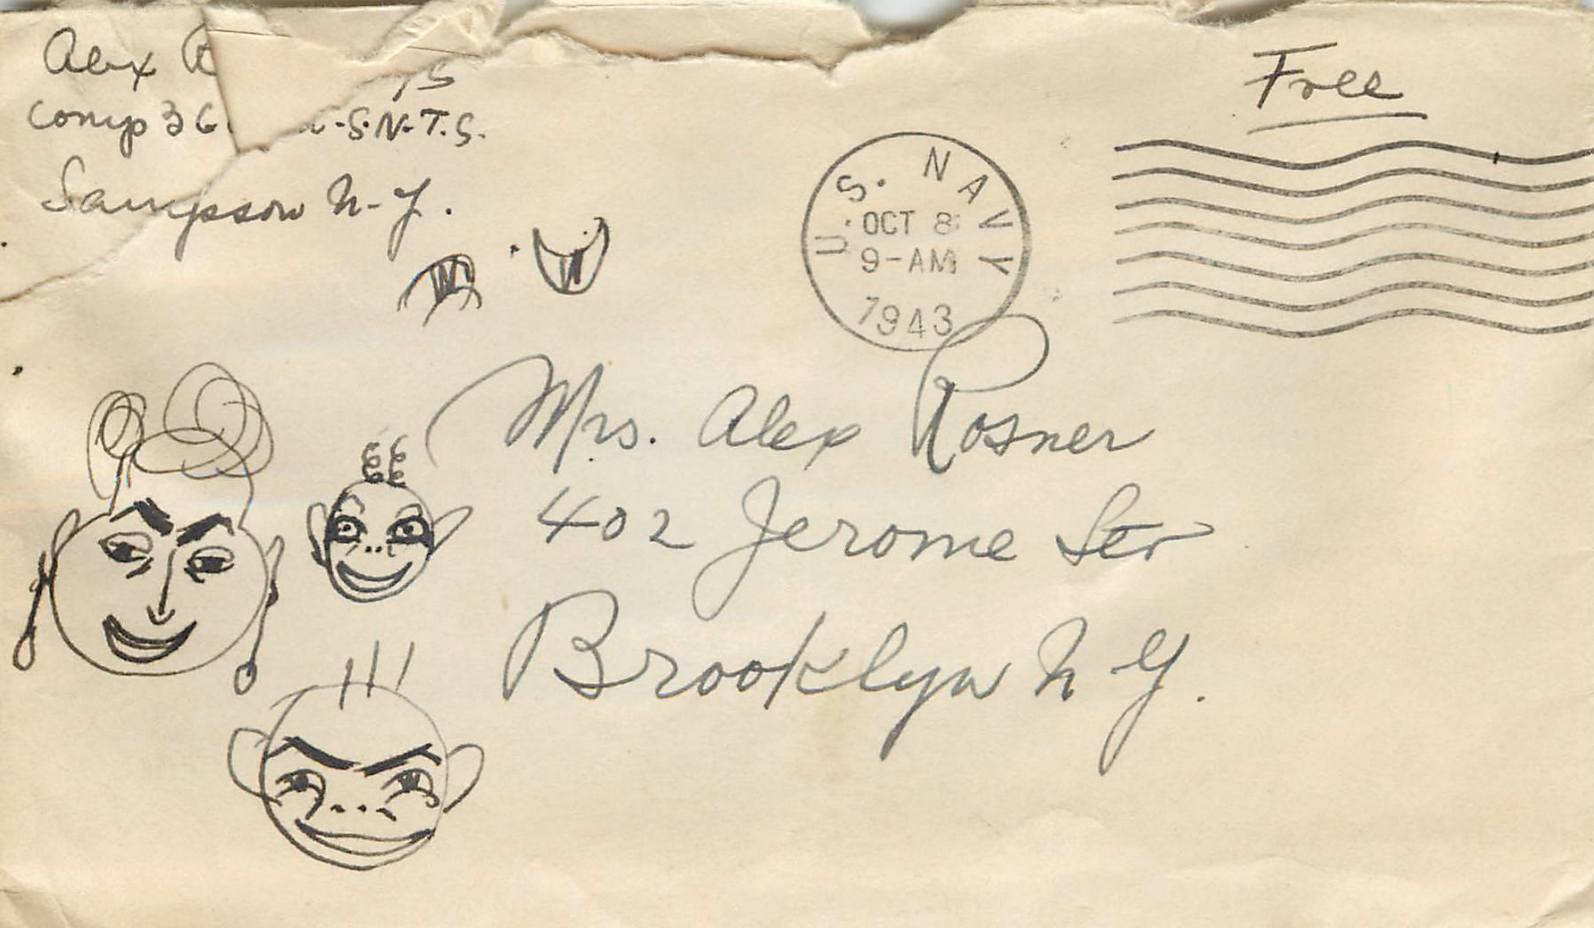 Alex
Comp 36 S.N.T.S.
Sampson N-Y.
Free
U.S. NAVY
OCT 8
9-AM
1943
Mrs. Alex Rosner
402 Jerome Str
Brooklyn N Y.